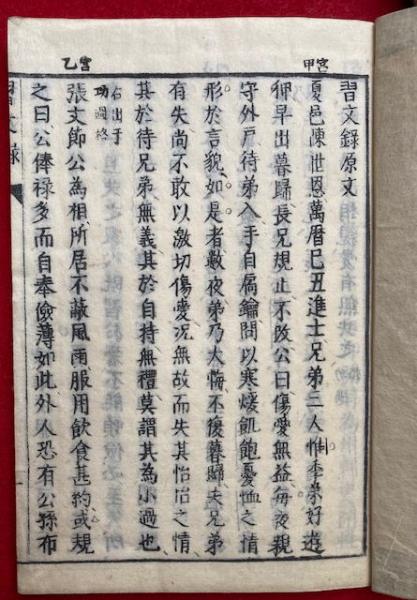 宮甲
習文錄原文
夏邑陳世恩萬曆己丑進士兄弟三人惟季弟好遊
狎早出暮歸長兄規止不改公曰傷愛無益每夜親
守外戸待弟入手自扃鑰問以寒煖飢飽憂恤之情
形於言貌如是者數夜弟乃大悔不復暮歸夫兄弟
有失尚不敢以激切傷愛況無故而失其怡怡之情
其於待兄弟無義其於自持無禮莫謂其為小過也
右出于
功過格
宮乙
張文節公為相所居不蔽風雨服用飲食甚約或規
之曰公俸祿多而自奉儉薄如此外人恐有公孫布
習文錄